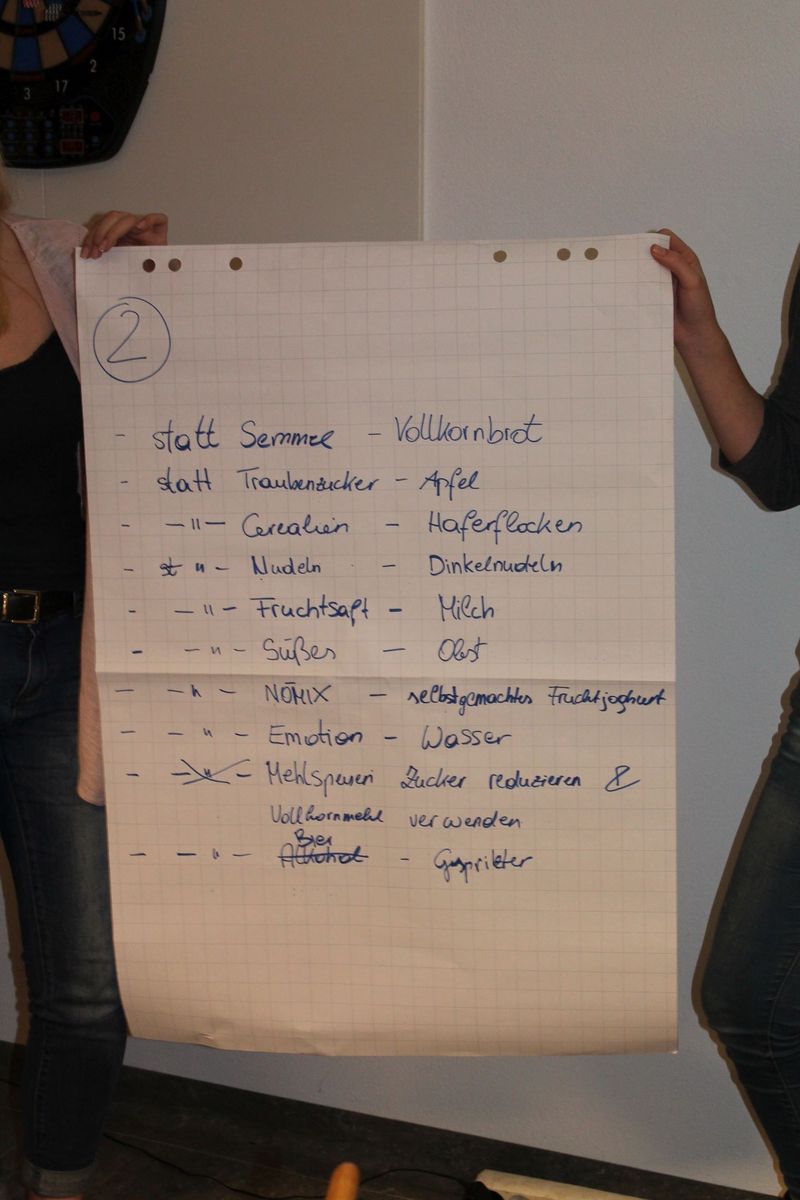 15
2
17
3
2
- statt Semmel - Vollkornbrot
- statt Traubenzucker - Apfel
- -"- Cerealien - Haferflocken
- st " - Nudeln - Dinkelnudeln
- - " - Fruchtsaft - Milch
- - " - Süßes - Obst
- - " - NÖMIX - selbstgemachtes Fruchtjoghurt
- - " - Emotion - Wasser
- - " - Mehlspeisen Zucker reduzieren &
Vollkornmehl verwenden
Bier
- - " - Alkohol - Gspritzter